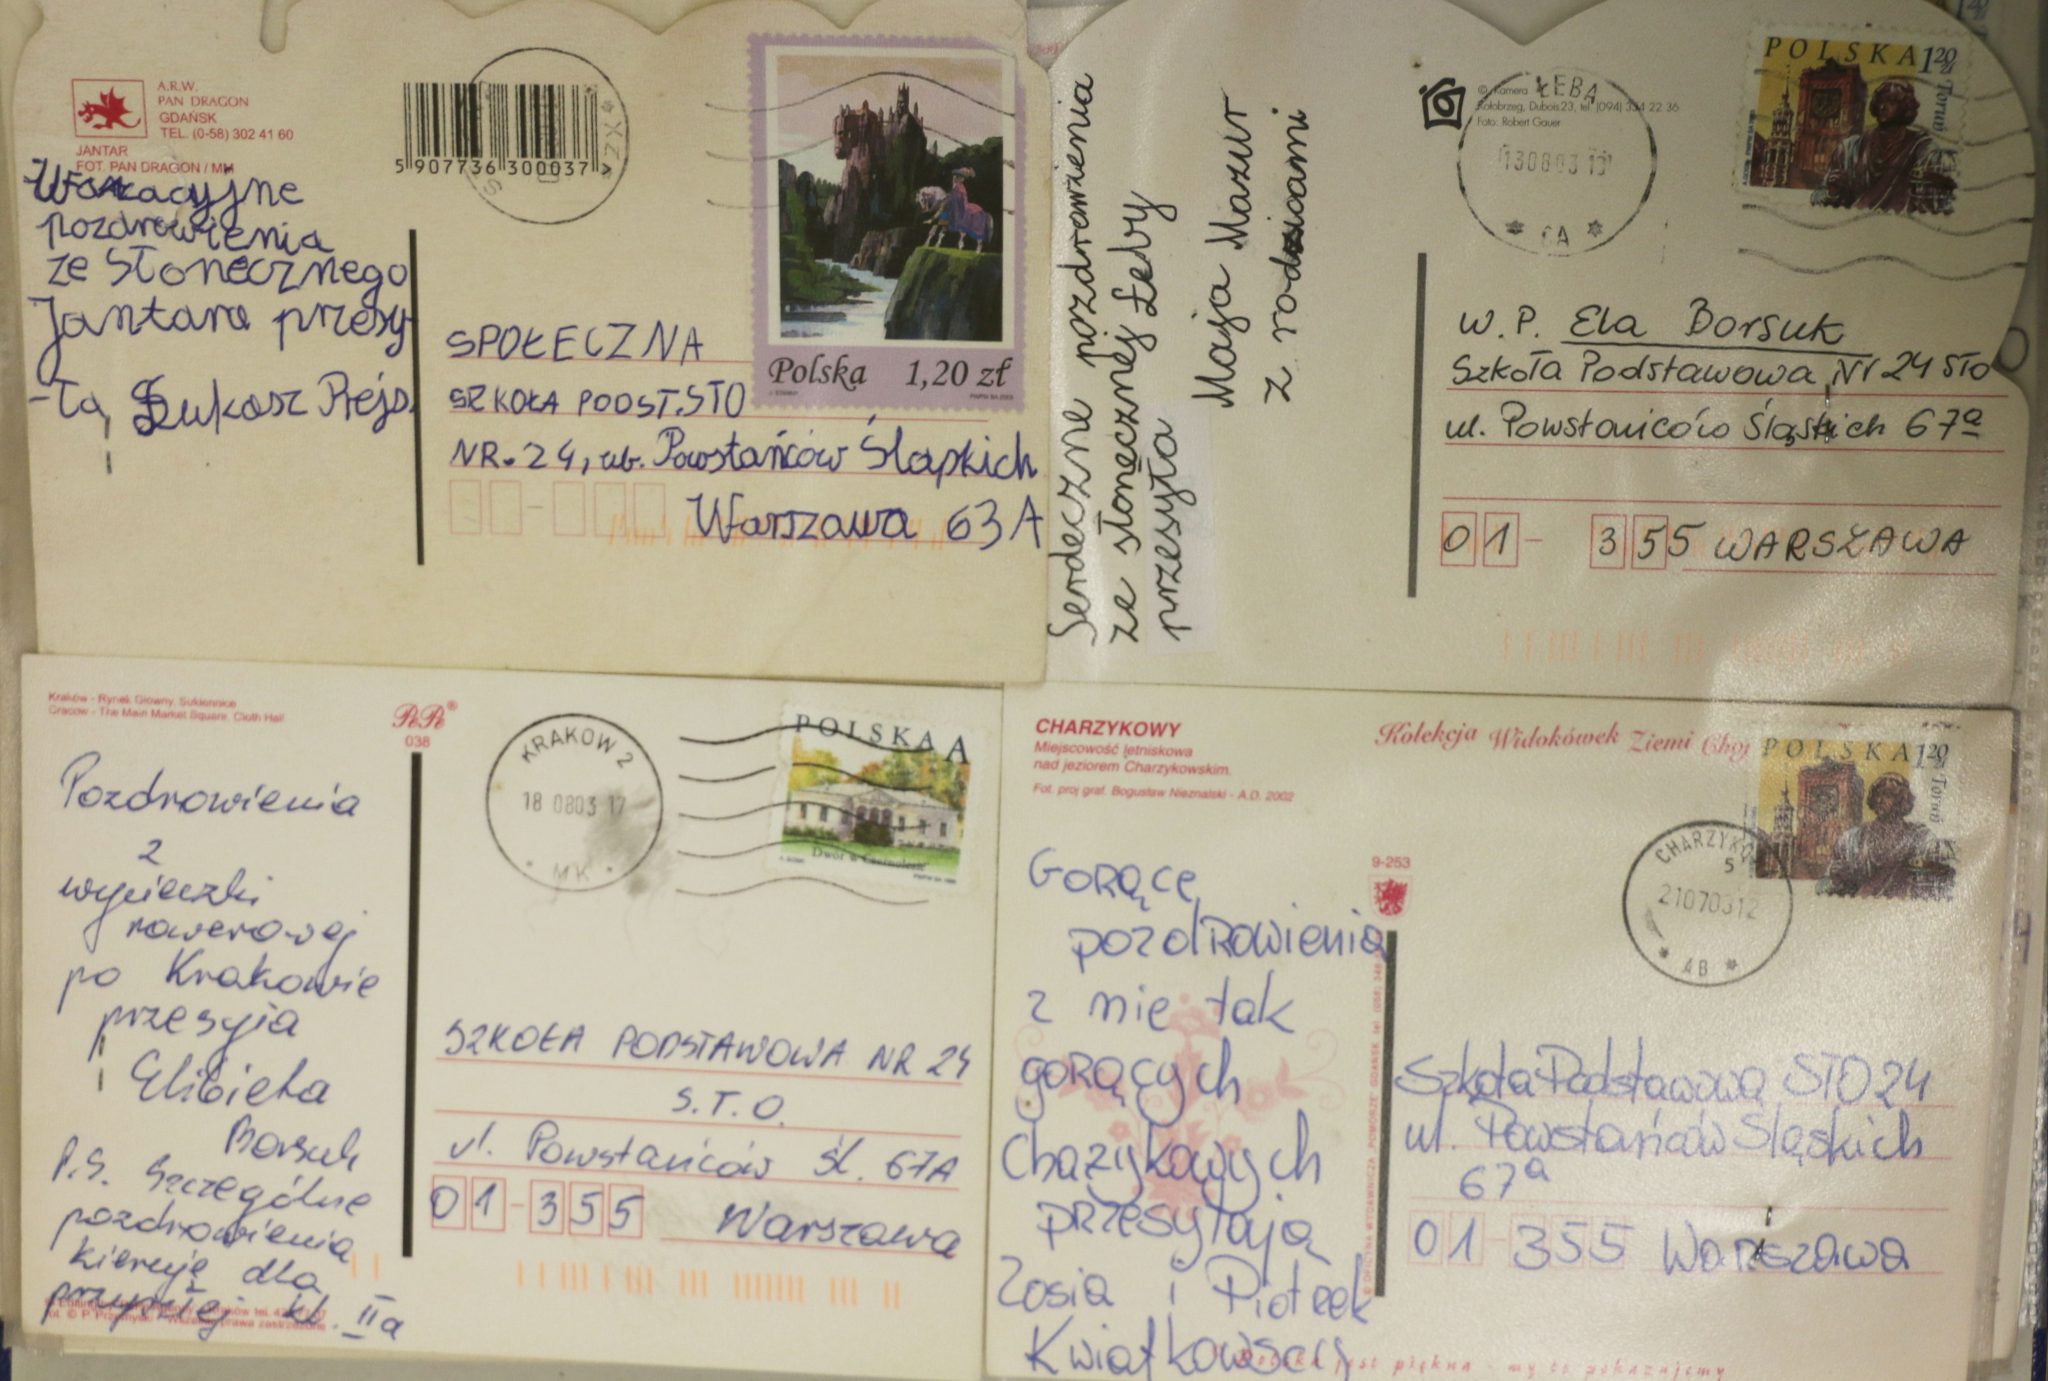 A.R.W.
PAN DRAGON
GDAŃSK
TEL. (0-58) 302 41 60
JANTAR
FOT. PAN DRAGON / MM
5 907736 300037
Polska 1,20 zł
Wakacyjne
pozdrowienia
ze Słonecznego
Jantara przesy-
-ła Łukasz
SPOŁECZNA
SZKOŁA PODST. STO
NR. 24, ul. Powstańców Śląskich
Warszawa 63 A
Serdeczne pozdrowienia
ze słonecznej Łeby
przesyła
Maja Mazur
z rodzicami
© Kamera
Kołobrzeg, Dubois 23, tel. (094) 354 22 36
Foto: Robert Gauer
ŁEBA
130803
CA
POLSKA 1,20 zł
Toruń
W. P. Ela Borsuk
Szkoła Podstawowa Nr 24 STO
ul. Powstańców Śląskich 67a
01-355 WARSZAWA
Kraków - Rynek Główny. Sukiennice
Cracow - The Main Market Square. Cloth Hall
038
KRAKÓW 2
18 0803 17
MK
POLSKA A
Pozdrowienia
z
wycieczki
rowerowej
po Krakowie
przesyła
Elżbieta
Borsuk
P.S. Szczególne
pozdrowienia
kieruję dla
przyszłej kl. IIa
SZKOŁA PODSTAWOWA NR 24
S.T.O.
ul. Powstańców Śl. 67A
01-355 Warszawa
CHARZYKOWY
Miejscowość letniskowa
nad jeziorem Charzykowskim.
Fot. proj graf. Bogusław Nieznalski - A.D. 2002
Kolekcja Widokówek Ziemi Choj
9-253
POLSKA 1,20 zł
Toruń
CHARZYKO
21070312
AB
Gorące
pozdrowienia
z nie tak
gorących
Chażykowych
przesyłają
Zosia i Piotrek
Kwiatkowscy
Szkoła Podstawowa STO 24
ul. Powstańców Śląskich
67a
01-355 Warszawa
Polska jest piękna - my to pokazujemy